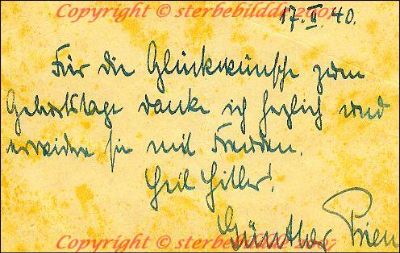 Copyright © sterbebilddd 2007
17. II. 40.
Für die Glückwünsche zum
Geburtstage danke ich herzlich und
erwidere sie mit Freuden.
Heil Hitler!
Günther Prien
Copyright © sterbebilddd 2007